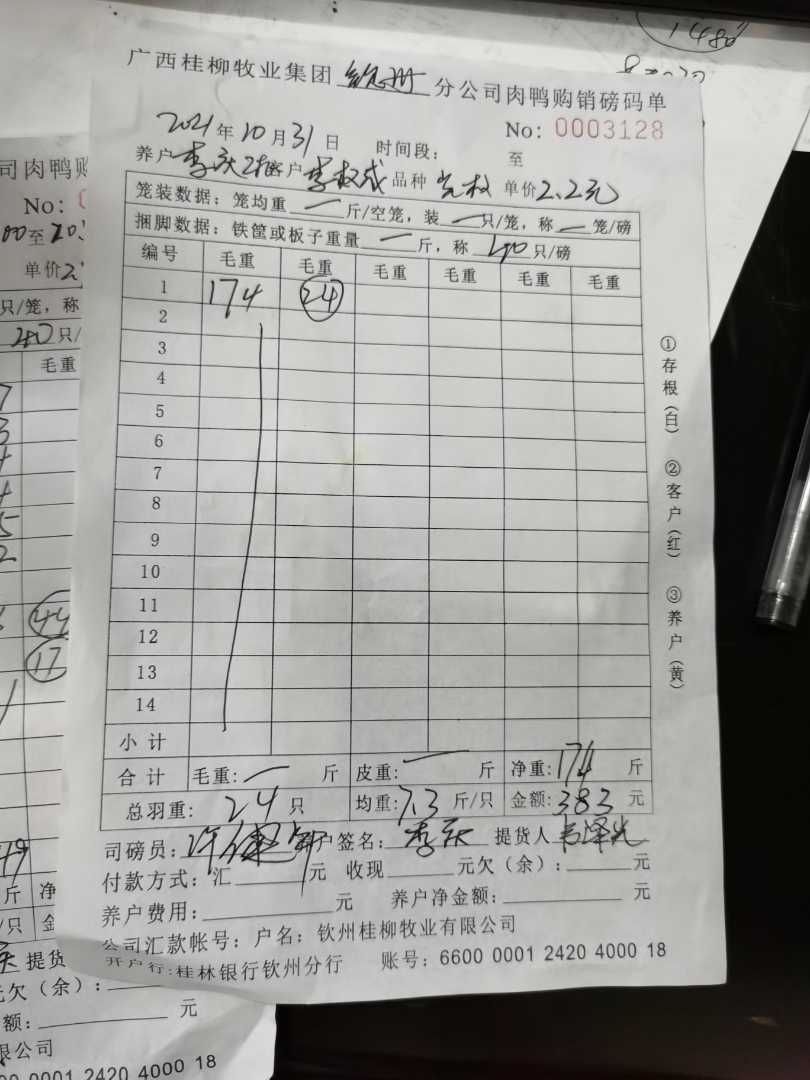 1480
广西桂柳牧业集团 钦州 分公司肉鸭购销磅码单
No: 0003128
2021年10月31日 时间段: 至
养户 李庆 客户 李权成 品种 单价2.2元
笼装数据: 笼均重 一 斤/空笼, 装 一 只/笼, 称 一 笼/磅
捆脚数据: 铁筐或板子重量 一 斤, 称 40 只/磅
编号 毛重 毛重 毛重 毛重 毛重 毛重
1 174 24
2
3
4
5
6
7
8
9
10
11
12
13
14
小计
合计 毛重: 一 斤 皮重: 一 斤 净重: 174 斤
总羽重: 24 只 均重: 7.3 斤/只 金额: 383 元
司磅员: 户签名: 李庆 提货人 韦泽光
付款方式: 汇 元 收现 元欠(余): 元
养户费用: 元 养户净金额: 元
公司汇款帐号: 户名: 钦州桂柳牧业有限公司
开户行: 桂林银行钦州分行 账号: 6600 0001 2420 4000 18
①存根(白) ②客户(红) ③养户(黄)
司肉鸭购
No: 0
00至20:
单价2
只/笼, 称
只/
毛重
44
17
斤 净
/只 金
提货
元欠(余):
额: 元
限公司
00 0001 2420 4000 18